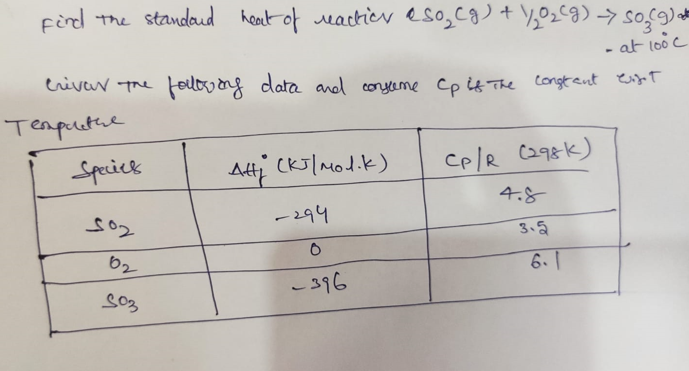 Find the standard heat of reaction SO₂(g) + 1/2O₂(g) → SO₃(g)
- at 100°C
Given the following data and assume Cp is the constant w.r.t
Temperature
Species ΔHf° (KJ/Mol.K) Cp/R (298K)
SO₂ -294 4.8
O₂ 0 3.5
SO₃ -396 6.1